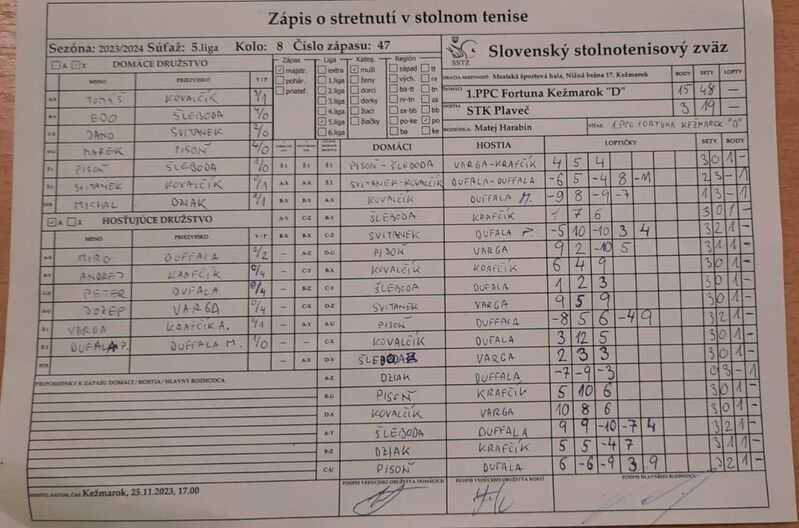 Zápis o stretnutí v stolnom tenise
Sezóna: 2023/2024 Súťaž: 5.liga Kolo: 8 Číslo zápasu: 47
SSTZ Slovenský stolnotenisový zväz
A X DOMÁCE DRUŽSTVO
MENO PRIEZVISKO V/P
TOMÁŠ KOVALČÍK 3/1
EDO ŠLEBODA 4/0
JANO SVITANEK 2/0
MAREK PISOŇ 4/0
PISOŇ ŠLEBODA 1/0
SVITANEK KOVALČÍK 0/1
MICHAL DZIAK 1/1
A X HOSŤUJÚCE DRUŽSTVO
MENO PRIEZVISKO V/P
MIRO DUFFALA 2/2
ANDREJ KRAFČÍK 0/4
PETER DUFALA 0/4
JOZEF VARGA 0/4
VARGA KRAFČÍK A. 0/1
DUFALA P. DUFFALA M. 1/0
PRIPOMIENKY K ZÁPASU DOMÁCI / HOSTIA / HLAVNÝ ROZHODCA
Zápas Liga Kateg. Región
majstr. extra muži západ tt
pohár. 1.liga ženy vých. nr
priateľ. 2.liga dorci ba-tt tn
3.liga dorky nr-tn za
4.liga žiaci za-bb bb
5.liga žiačky po-ke po
6.liga ba ke
HRACIA MIESTNOSŤ: Mestská športová hala, Nižná brána 17, Kežmarok
BODY SETY LOPTY
DOMÁCI 1.PPC Fortuna Kežmarok "D" 15 48 —
HOSTIA STK Plaveč 3 19 —
ROZHODCA: Matej Harabin VÍŤAZ: 1.PPC FORTUNA KEŽMAROK "D"
DOMÁCI HOSTIA LOPTIČKY SETY BODY
Š1 Š1 Š1 PISOŇ-ŠLEBODA VARGA-KRAFČÍK 4 5 4 3 0 1 -
A-X A-X Š2 SVITANEK-KOVALČÍK DUFALA-DUFFALA -6 5 -4 8 -11 2 3 - 1
KOVALČÍK DUFFALA M. -9 8 -9 -7 1 3 - 1
ŠLEBODA KRAFČÍK 1 7 6 3 0 1 -
SVITANEK DUFALA P. -5 10 -10 3 4 3 2 1 -
PISOŇ VARGA 9 2 -10 5 3 1 1 -
KOVALČÍK KRAFČÍK 6 4 9 3 0 1 -
ŠLEBODA DUFALA 1 2 3 3 0 1 -
SVITANEK VARGA 9 5 9 3 0 1 -
PISOŇ DUFFALA -8 5 6 -4 9 3 2 1 -
KOVALČÍK DUFALA 3 12 5 3 0 1 -
ŠLEBODA VARGA 2 3 3 3 0 1 -
A-Z DZIAK DUFFALA -7 -9 -3 0 3 - 1
B-U PISOŇ KRAFČÍK 5 10 6 3 0 1 -
D-X KOVALČÍK VARGA 10 8 6 3 0 1 -
A-Y ŠLEBODA DUFFALA 9 9 -10 -7 4 3 2 1 -
B-Z DZIAK KRAFČÍK 5 5 -4 7 3 1 1 -
C-U PISOŇ DUFALA 6 -6 -9 3 9 3 2 1 -
MIESTO, DÁTUM, ČAS: Kežmarok, 25.11.2023, 17.00
PODPIS VEDÚCEHO DRUŽSTVA DOMÁCICH PODPIS VEDÚCEHO DRUŽSTVA HOSTÍ PODPIS HLAVNÉHO ROZHODCU